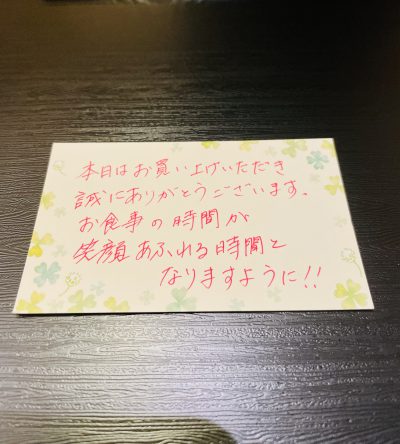 本日はお買い上げいただき
誠にありがとうございます。
お食事の時間が
笑顔あふれる時間と
なりますように!!